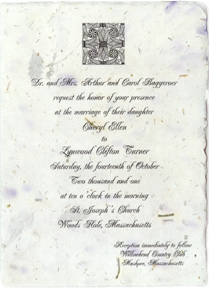 Dr. and Mrs. Arthur and Carol Baggeroer
request the honor of your presence
at the marriage of their daughter
Cheryl Ellen
to
Lynwood Clifton Turner
Saturday, the fourteenth of October
Two thousand and one
at ten o'clock in the morning
St. Joseph's Church
Woods Hole, Massachusetts
Reception immediately to follow
Country Club
Mashpee, Massachusetts